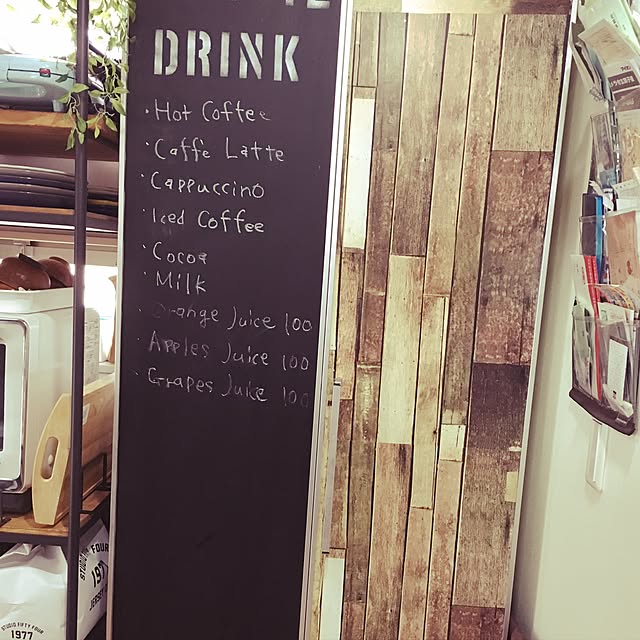 DRINK
· Hot Coffee
· Caffe Latte
· Cappuccino
· Iced Coffee
· Cocoa
· Milk
· Orange Juice 100
· Apples Juice 100
· Grapes Juice 100
STUDIO FIFTY FOUR
1977
FOUR
1977
JERSEY